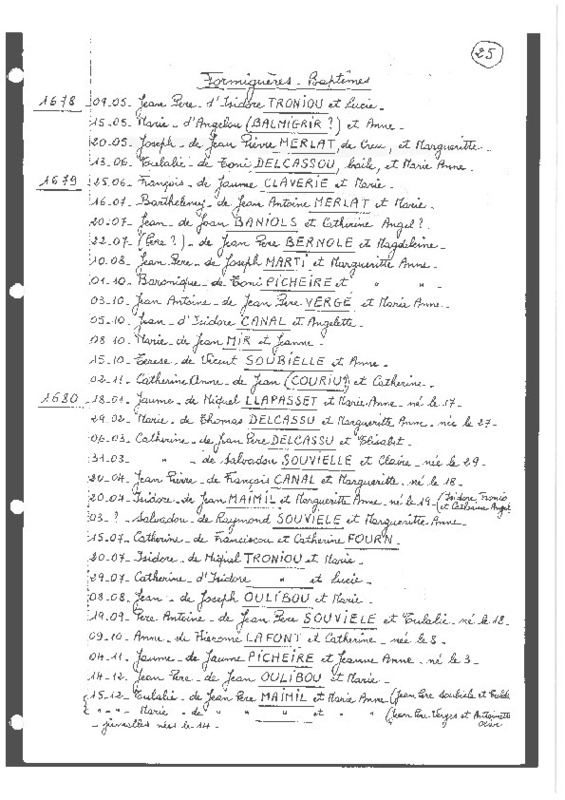 25
Formiguères - Baptêmes
1678 09.05. Jean Pere - d'Isidore TRONIOU et Lucie -
15.05. Marie - d'Angelou (BALMIGRIR ?) et Anne -
20.05. Joseph - de Jean Pierre MERLAT, de Creu, et Margueritte -
13.06. Eulalie - de Toni DELCASSOU, baile, et Marie Anne -
1679 25.06. François - de Jaume CLAVERIE et Marie -
16.07. Barthelemy - de Jean Antoine MERLAT et Marie -
20.07. Jean - de Joan BANIOLS et Catherine Angel ?
22.07. (Pere ?) - de Jean Pere BERNOLE et Magdeleine -
10.08. Jean Pere - de Joseph MARTI et Margueritte Anne -
01.10. Baronique - de Toni PICHEIRE et " " -
03.10. Jean Antoine - de Jean Pere VERGÉ et Marie Anne -
05.10. Jean - d'Isidore CANAL et Angelette -
08.10. Marie - de Jean MIR et Jeanne -
15.10. Terese - de Vicent SOUBIELLE et Anne -
02.11. Catherine Anne - de Jean (COURIU?) et Catherine -
1680 18.01. Jaume - de Miquel LLAPASSET et Marie Anne - né le 17 -
29.02. Marie - de Thomas DELCASSU et Margueritte Anne - née le 27 -
06.03. Catherine - de Jean Pere DELCASSU et Elisabit -
31.03. " - de Salvadou SOUVIELLE et Claire - née le 29 -
20.04. Jean Pierre - de François CANAL et Margueritte - né le 18 -
20.04. Isidore - de Jean MAIMIL et Margueritte Anne - né le 19 - (Isidore et Catherine Angel
03.? - Salvadou - de Raymond SOUVIELE et Margueritte Anne -
15.07. Catherine - de Franciscou et Catherine FOURN -
20.07. Isidore - de Miquel TRONIOU et Marie -
29.07. Catherine - d'Isidore " et Lucie -
08.08. Jean - de Joseph OULIBOU et Marie -
19.09. Pere Antoine - de Jean Pere SOUVIELE et Eulalie - né le 18 -
09.10. Anne - de Hierome LAFONT et Catherine - née le 8 -
04.11. Jaume - de Jaume PICHEIRE et Jeanne Anne - né le 3 -
14.12. Jean Pere - de Jean OULIBOU et Marie -
15.12. Eulalie - de Jean Pere MAIMIL et Marie Anne (Jean Pere Soubiele et
" " - Marie - de " " et " " (Jean Pere Verges et Antoinette
- jumelles nées le 14 -